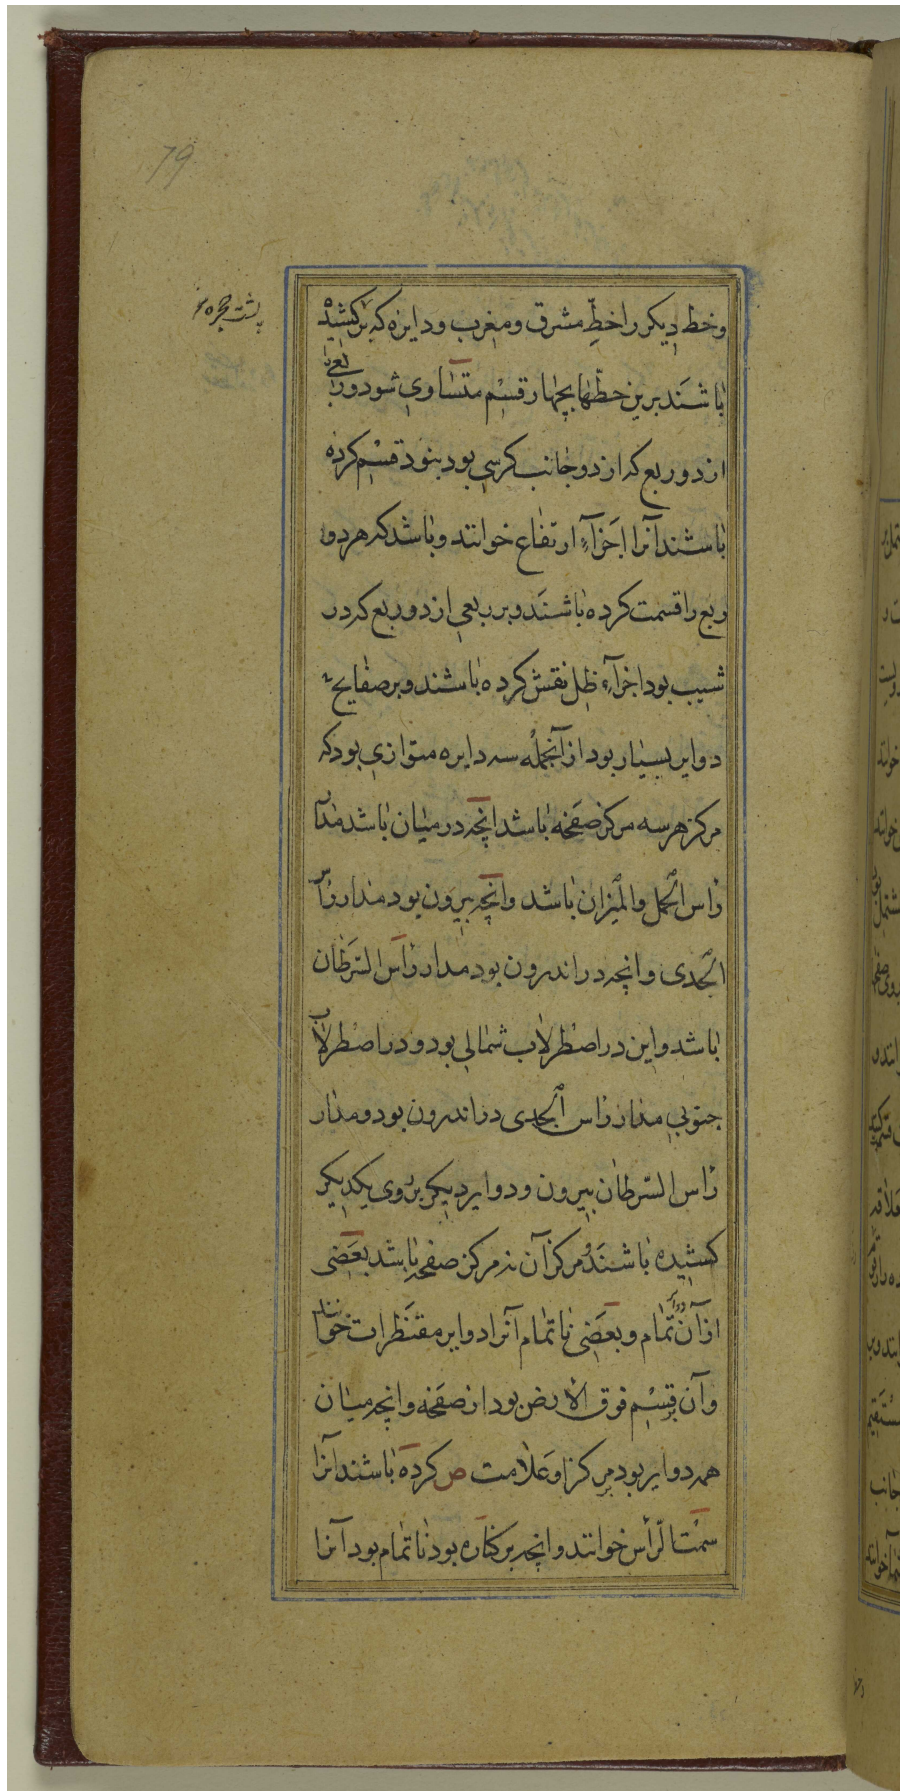 79
وخط دیکر را خطِّ مشرق ومغرب ودایره که بر کشیده
پشت حجره
باشَند برین خطّها بچهار قسْم متَساوی شود وربعی
از دو ربع که از دو جانب کرسی بود بنود قسْم کرده
باشند آنرا اَجزآءِ ارتفاع خوانند وباشد که هر دو
ربع را قسمت کرده باشَند و بر ربعی از دو ربع که در
شیب بود اجزآءِ ظل نقش کرده باشند و بر صفایح
دوایر بسیار بود از آنجمله سه دایره متوازی بود که
مرکز هر سه مرکز صفَحه باشد انچه در میان باشد مدار
رأس الحمل والمیزان باشد وانچه بیرون بود مدار رأس
الجدی وانچه در اندرون بود مدار رأس السَّرَطان
باشد واین در اصْطرلاب شمالی بود ودر اصْطرلاب
جنوبی مدار رأس الجدی در اندرون بود ومدار
رأس السّرطان بیرون ودوایر دیکر بر روی یکدیکر
کشیده باشَند ومرکز آن نه مرکز صفحه باشد بعَضی
از آن دوایر تمام وبعَضی نا تمام آنرا دوایر مقنَطرات خوانند
وآن قسْم فوق الارض بود از صفَحه وانچه میان
همه دوایر بود بر مرکز او عَلامت ص کرده باشند آنرا
سمْت الرّأس خوانند وانچه بر کناره بود نا تمام بود آنرا